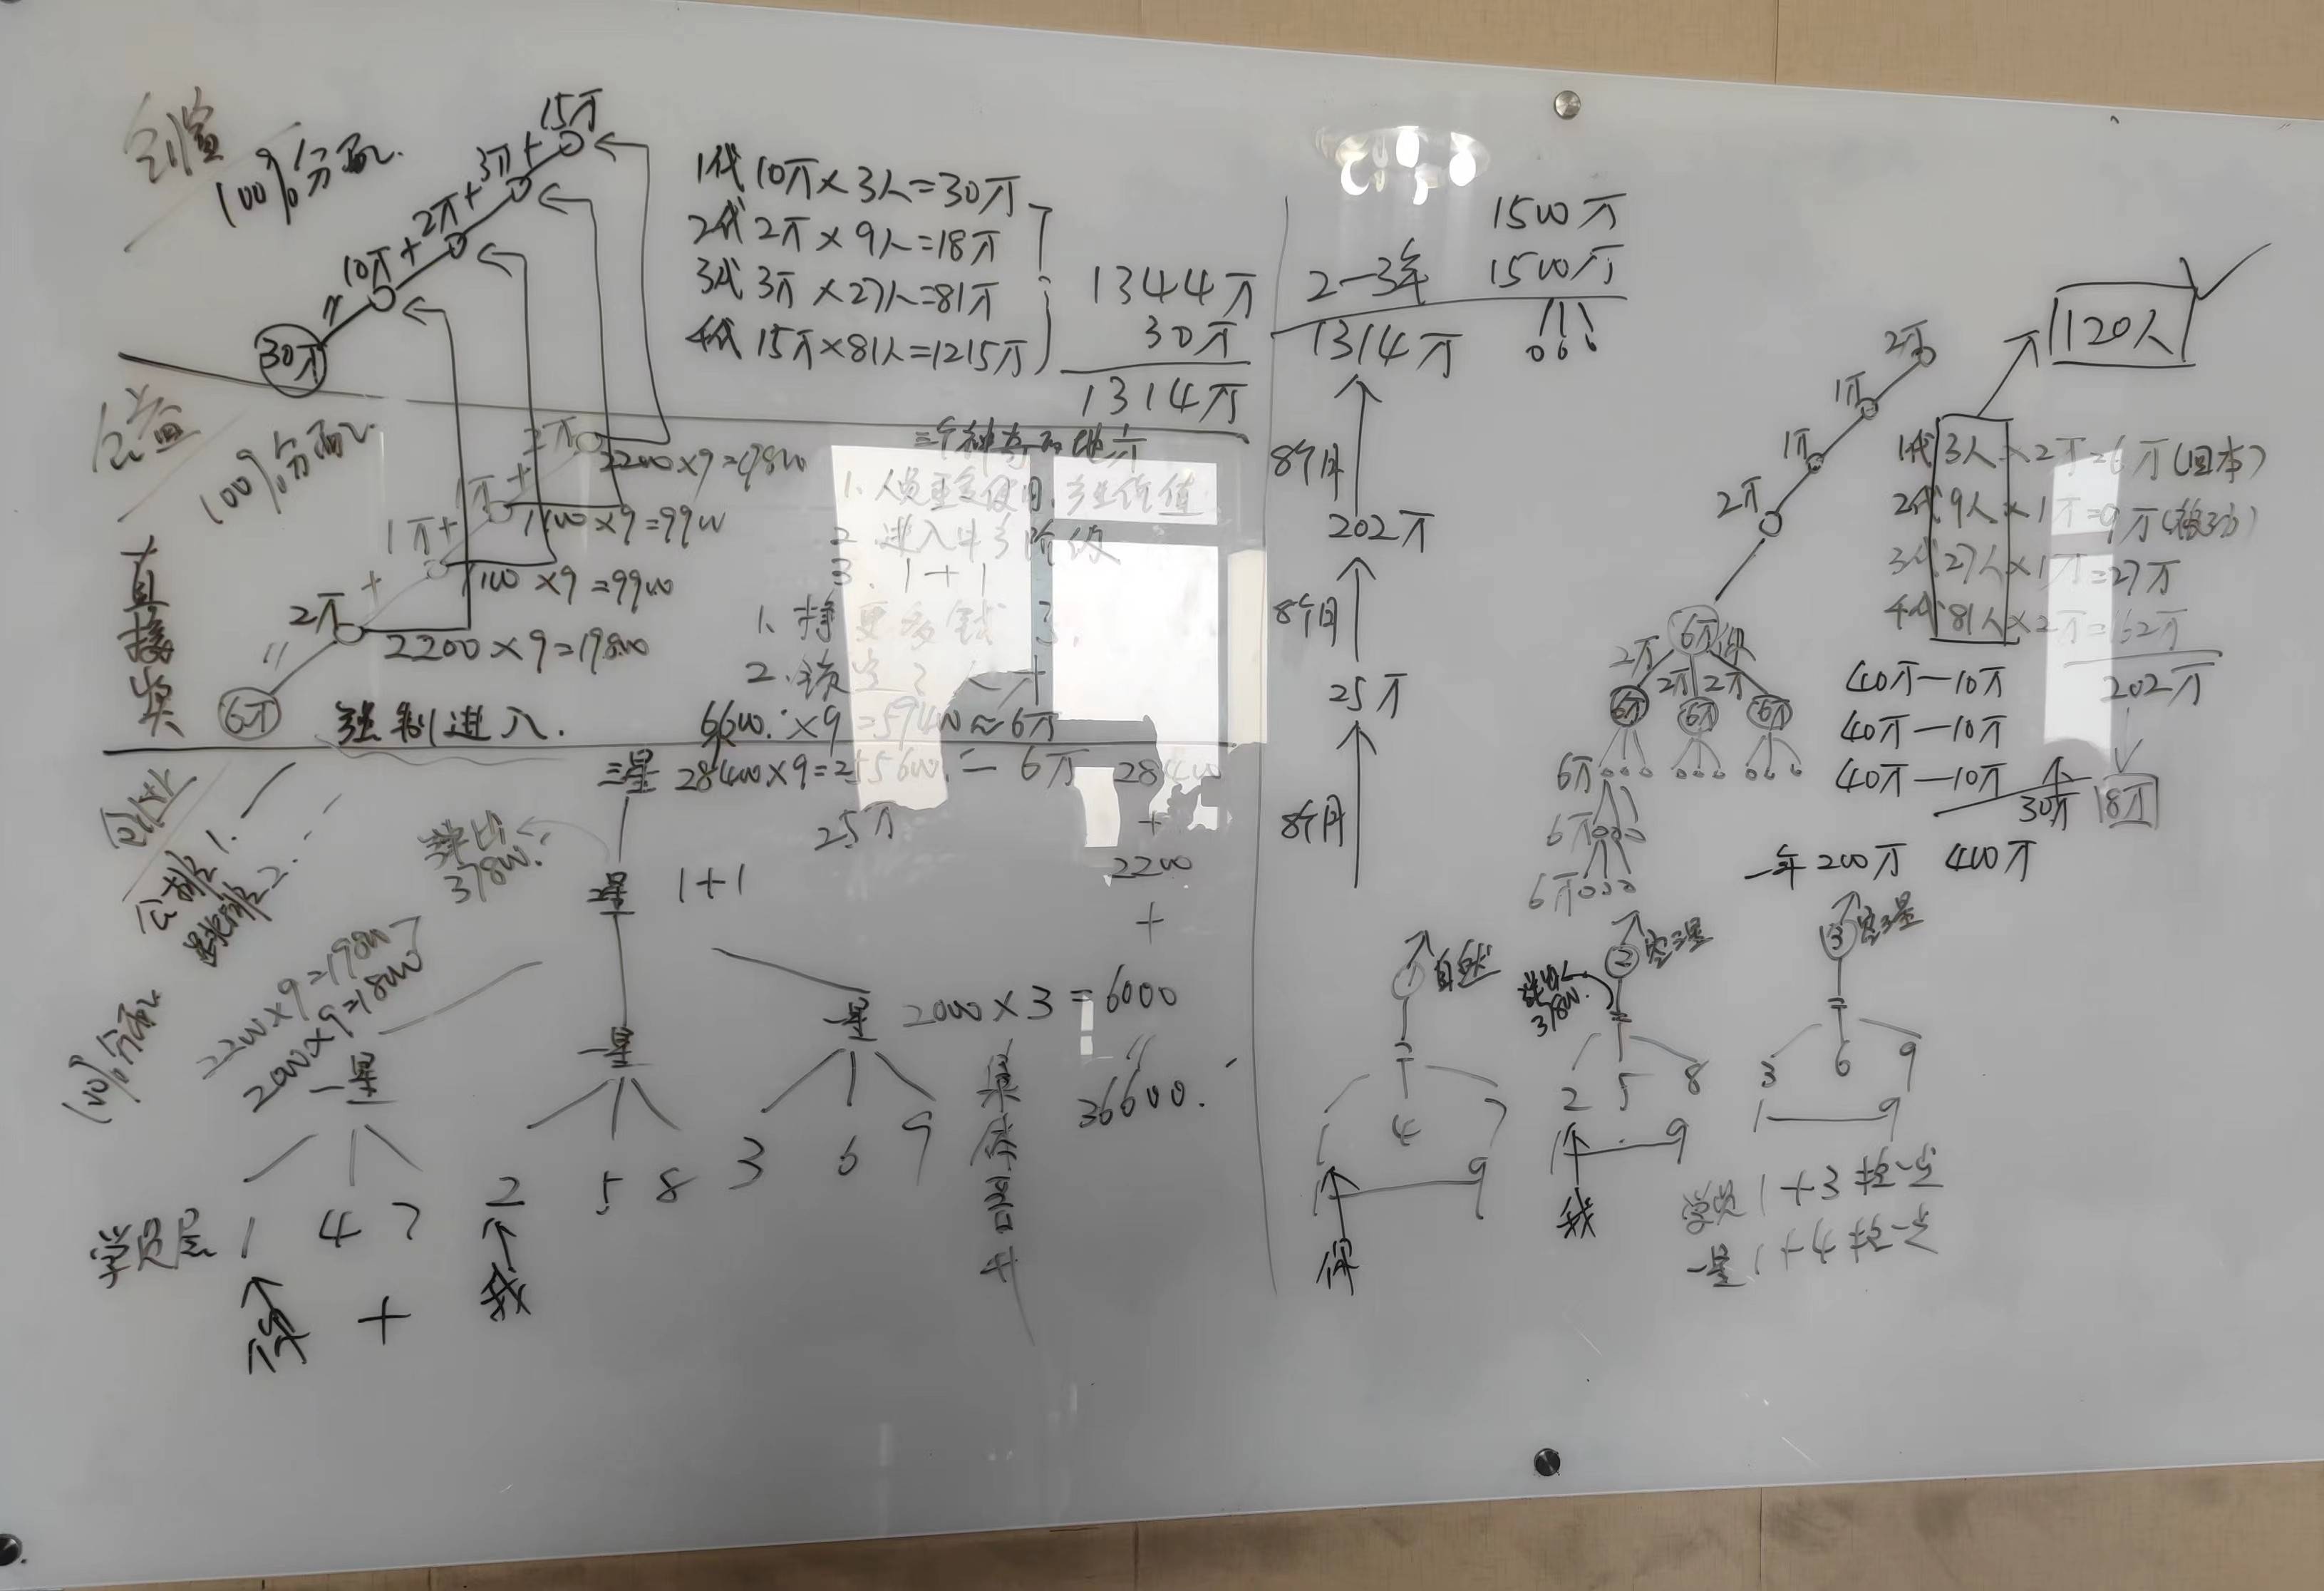 创富
100%分配.
30万
=
10万+
2万+
3万+
15万
1代 10万×3人=30万
2代 2万×9人=18万
3代 3万×27人=81万
4代 15万×81人=1215万
1344万
30万
1314万
100%分配
直接奖
6万
=
2万
+
1万+
1万+
2万
2200×9=19800
1100×9=9900
1100×9=9900
2200×9=19800
强制进入.
1.
2. 进入
3. 1+1
1.
2.
6600×9=59400≈6万
三星 28400×9=255600=6万
25万
28400
+
2200
+
2000×3=6000
=
36600.
创业
1.
2.
100%分配
2200×9=19800
2000×9=18000
37800.
二星 1+1
一星
一星
一星
学员层
1 4 7
2 5 8
3 6 9
你
+
我
1500万
2-3年 1500万
1314万
8个月
202万
8个月
25万
8个月
2万
1万
1万
2万
6万
2万 2万 2万
6万 6万 6万
6万
6万
6万
120人
1代 3人×2万=6万(回本)
2代 9人×1万=9万
3代 27人×1万=27万
4代 81人×2万=162万
202万
40万-10万
40万-10万
40万-10万
30万
18万
一年200万 400万
自然
1 4 7
1 9
你
②
37800.
2 5 8
1 9
我
③
3 6 9
1 9
学员 1+3
一星 1+4